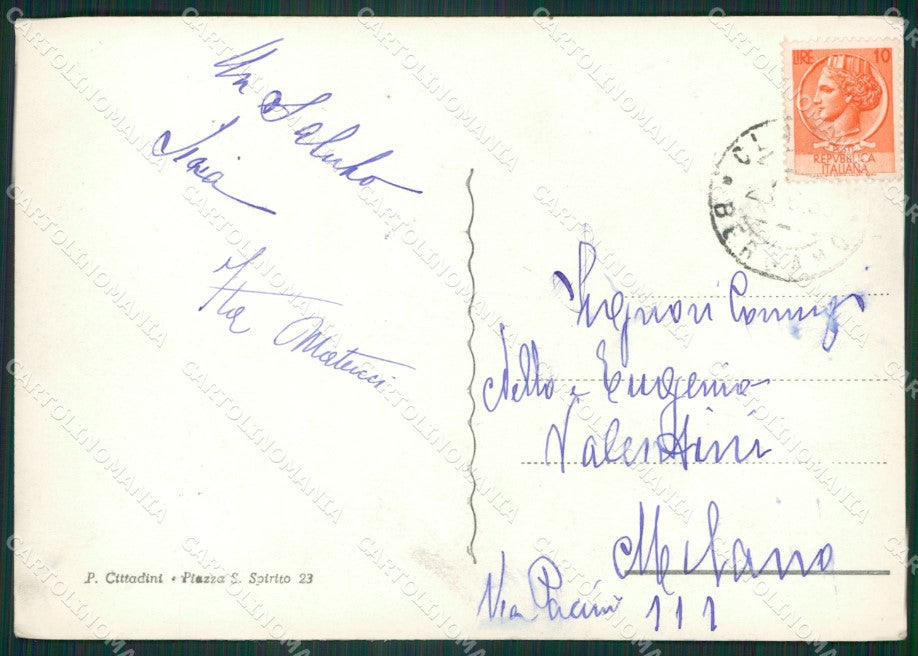 Un Saluto
Isaia
Ita Mateucci
P. Cittadini • Piazza S. Spirito 23
LIRE 10
REPVBBLICA
ITALIANA
BERGAMO
Signori Coniugi
Nello e Eugenia
Valentini
Milano
Via Pacini 111
CARTOLINOMANIA